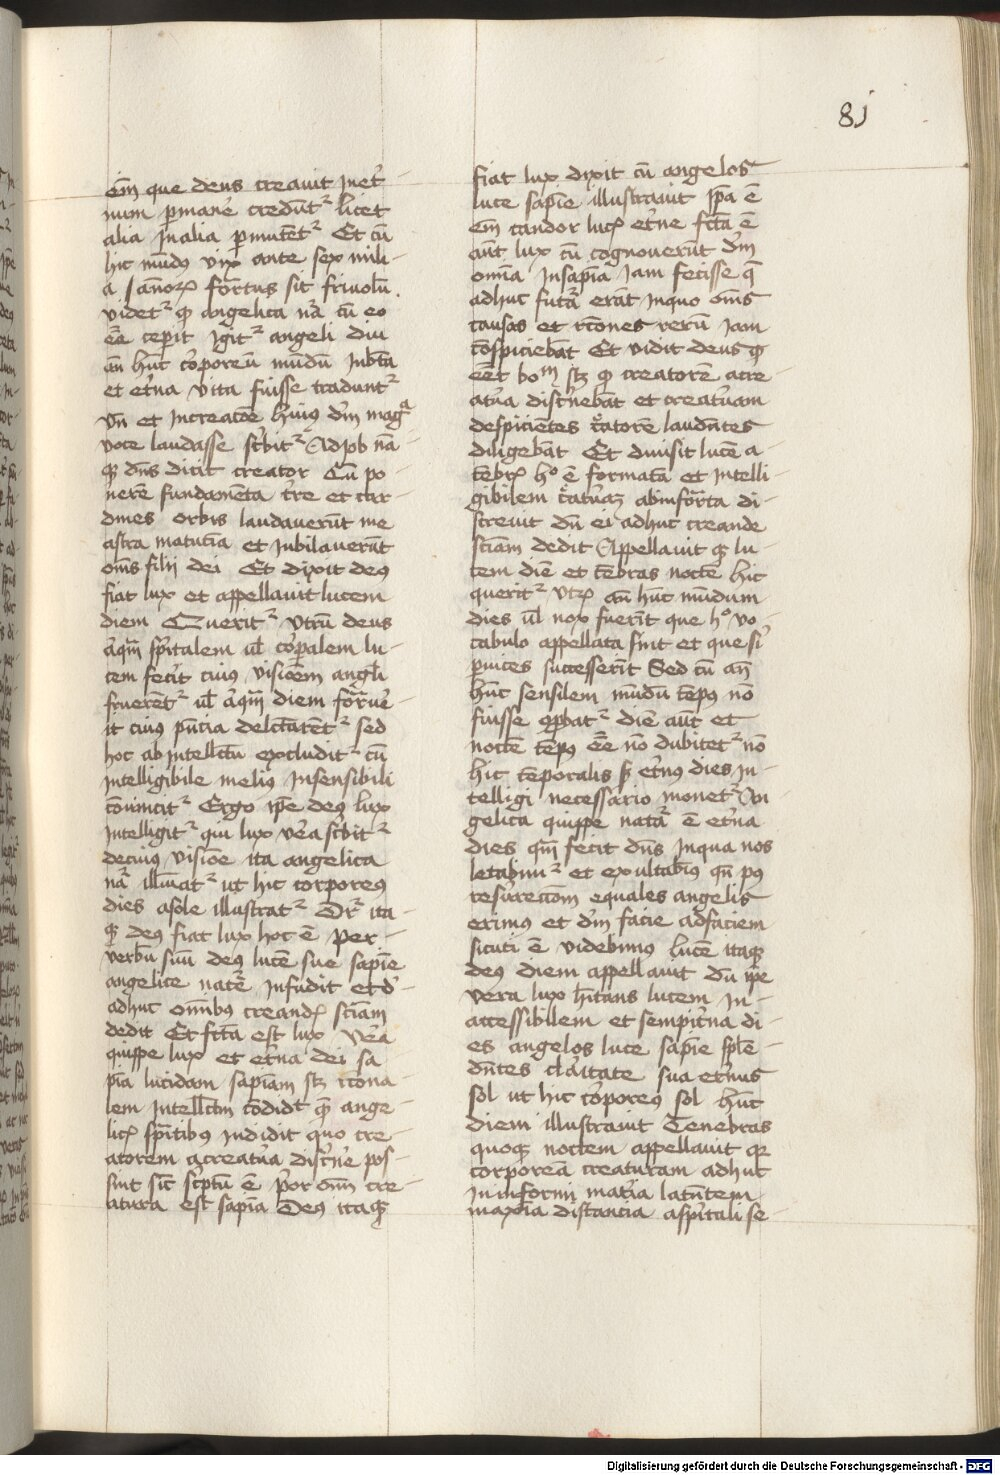 81
om̄ que deus creauit inet̄
num ꝑmane͛ credūt͛ licet
alia in alia ꝑmutēt͛ Et cū
hic mūdꝰ vix ante sex mili-
a sannoꝝ fortus sit friuolū
videt͛ ꝙ angelica nr̄a cū eo
eē̄ cepit Igit͛ angeli diu
an̄ hūc corporeū mūdū
et et͛na vita fuisse tradunt͛
vn̄ et increatōe hꝰius dm̄ magᵃ
voce laudasse sc͛bit͛ Ad iob nā
ꝙ dn̄s dicit creator Cū po-
nerē fundamēta t͛re et car-
dines orbis laudauerūt me
astra matutīa et iubilauerūt
om̄s filij dei Et dixit deꝰ
fiat lux et appellauit lucem
diem Querit͛ vtrū deus
aliq̄m spi͛talem ul̄ corp͛alem lu-
cem fecit cuiꝰ visiōem angl̄i
fruerēt͛ ul̄ aliq̄m diem
it cuiꝰ delectarēt͛ sed
hoc ab intellectu excludit͛ cū
intelligibile meliꝰ insensibili
cōuincit͛ Ergo ip̄e deꝰ lux
intelligit͛ qui lux v͛a sc͛bit͛
de cuiꝰ visiōe ita angelica
nr̄a illūiat͛ ut hic corporeꝰ
dies a sole illustrat͛ Dr̄ ita-
ꝙ deꝰ fiat lux hoc ē per-
verbū suū deꝰ lucē sue sapīe
angelice nat͛e infudit et d͛
adhuc om̄ibꝰ creandꝭ sciam
dedit Et fc̄ta est lux v͛a
quippe lux et et͛na dei sa
pīa lucidam sapīam sꝫ rc̄ona-
lem intellc̄m cōdidit q̄ ange-
licꝭ spi͛tibꝰ indidit quo cre-
atorem a creat͛a disc͛ne͛ pos-
sint sic̄ sc͛ptū ē p͛or om̄i cre-
atura est sapīa Deꝰ itaqꝫ
fiat lux dixit cū angelos
luce sapīe illustrauit Ip̄a ē
em̄ candor lucꝭ et͛ne fc̄ta ē
aūt lux cū cognouerūt dm̄
om̄ia in sapīa iam fecisse q̄
adhuc futa͛ erāt in quo om̄s
causas et rc̄ones rerū iam
cōspiciebāt Et vidit deus ꝙ
eēt boᵐ sꝫ ꝙ creatorē acre
at͛a disc͛nebāt et creat͛am
despiciētes c͛atorē laudātes
diligebāt Et diuisit lucē a
tēbrꝭ hᵒ ē formatā et intelli-
gibilem c͛at͛aꝫ ab informata di-
screuit dū ei adhuc creande
sciam dedit Appellauit qꝫ lu-
cem diē et tēbras noctē hic
querit͛ vtꝝ an̄ hūc mūdum
dies ul̄ nox fuerit que hᵒ vo-
cabulo appellata sint et que si͛
ꝑ uices successerīt Sed cū an̄
hūc sensilem mūdū tēpꝰ nō
fuisse ꝓbat͛ diē aūt et
noctē tēpꝰ eē̄ nō dubitet͛ nō
hic tēporalis sꝫ et͛nꝰ dies in-
telligi necessario monet͛ An
gelica quippe nat͛a ē et͛na
dies qm̄ fecit dn̄s in qua nos
letabim͛ et exultabimꝰ qn̄ pꝰ
resurrectiōem equales angelis
erimus et dm̄ facie ad faciem
sicuti ē videbimus lucē itaqꝫ
deꝰ diem appellauit dū ip̄e
vera lux hītans lucem in-
accessibilem et sempit͛na di-
es angelos luce sapīe splē-
dn̄tes claritate sua et͛nus
sol ut hic corporeꝰ sol hūc
diem illustrauit Tenebras
quoqꝫ noctem appellauit qꝫ
corporeā creaturam adhuc
in informi mat͛ia latn̄tem
maxīa distancia a spi͛tali se-
Digitalisierung gefördert durch die Deutsche Forschungsgemeinschaft - DFG